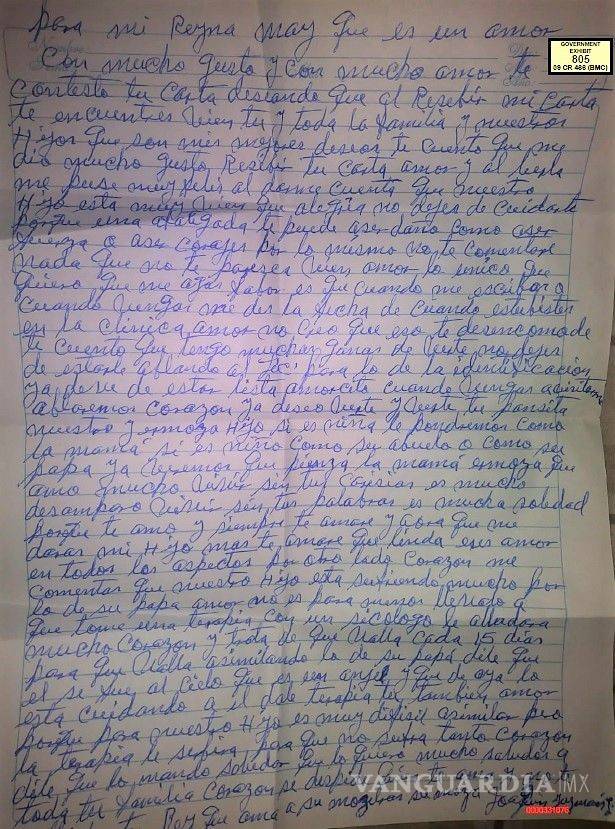 para mi Reyna may que es un amor
GOVERNMENT
EXHIBIT
805
09 CR 466 (BMC)
Con mucho gusto y con mucho amor te
contesto tu carta deseando que al Resebir mi Carta
te encuentres vien tu y toda la familia y nuestros
Hijos que son mis mejores deseos te cuento que me
dio mucho gusto Resibir tu carta amor y al
me puse muy feliz al darme cuenta que nuestro
Hijo esta muy vien que alegria no dejes de cuidarte
porque una te puede aser daño como aser
o aser corajes por lo mismo no te comentare
nada que no te paresca vien amor lo unico que
quiero que me agas fabor es que cuando me escribas o
cuando vengas me des la fecha de cuando estubistes
en la clinica amor no creo que eso te
te cuento que tengo muchas ganas de verte no dejes
de estarle ablando al para lo de la edentificacion
ya deve de estar lista amorcito cuando vengas a
ablaremos corazon ya deseo verte y verte tu pansita
nuestro y ermozo Hijo si es niña le pondremos como
la mamá si es niño como su abuelo o como su
papá ya veremos que pienza la mamá ermoza que
amo mucho vivir sin tus carisias es mucho
desamparo vivir sin tus palabras es mucha soledad
porque te amo y siempre te amare y aora que me
daras mi Hijo mas te amare que linda eres amor
en todos los aspectos por otro lado corazon me
comentas que nuestro Hijo esta sufriendo mucho por
lo de su papa amor no es para menos llevalo a
que tome una terapia con un sicologo le ayudara
mucho corazon y trata de que valla cada 15 dias
para que valla asimilando lo de su papá dile que
el se fue al cielo que es un angel y que de aya lo
esta cuidando a el dale terapia tu tambien amor
porque para nuestro Hijo es muy difisil asimilar pero
la terapia le servira para que no sufra tanto corazon
dile que lo mando saludar que lo quiero mucho saludos a
toda tu familia corazon se despide
Rey que ama a su
VANGUARDIA MX
0000331076